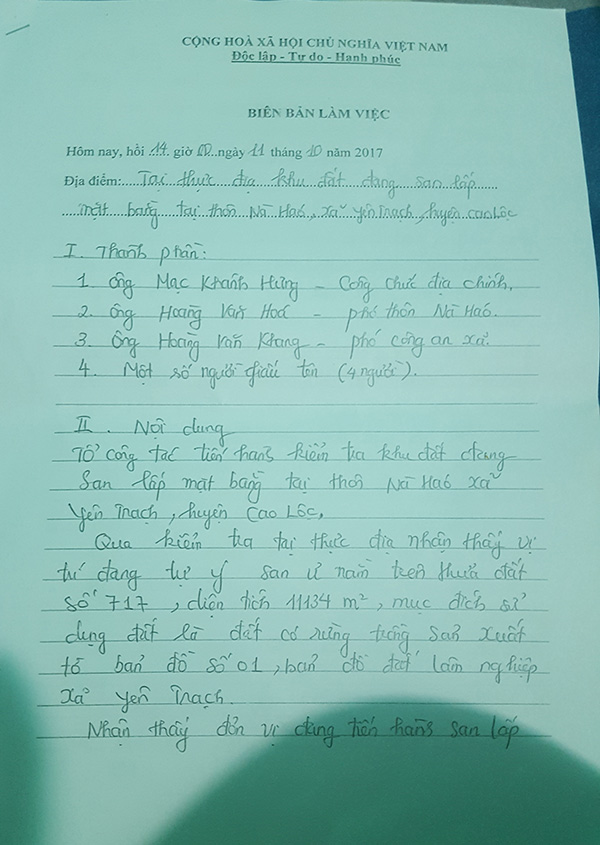 CỘNG HOÀ XÃ HỘI CHỦ NGHĨA VIỆT NAM
Độc lập - Tự do - Hạnh phúc
BIÊN BẢN LÀM VIỆC
Hôm nay, hồi 14 giờ 00 ngày 11 tháng 10 năm 2017
Địa điểm: Tại thực địa khu đất đang san lấp
mặt bằng tại thôn Nà Háo, xã Yên Trạch, huyện Cao Lộc
I. Thành phần:
1. Ông Mạc Khánh Hưng - Công chức địa chính.
2. Ông Hoàng Văn Hoá - phó thôn Nà Háo.
3. Ông Hoàng Văn Khang - phó công an xã.
4. Một số người giấu tên (4 người).
II. Nội dung
Tổ công tác tiến hành kiểm tra khu đất đang
San lấp mặt bằng tại thôn Nà Háo xã
Yên Trạch, huyện Cao Lộc,
Qua kiểm tra tại thực địa nhận thấy vị
trí đang tự ý san ủi nằm trên thửa đất
số 717, diện tích 11134 m², mục đích sử
dụng đất là đất có rừng trồng sản xuất
tờ bản đồ số 01, bản đồ đất lâm nghiệp
xã Yên Trạch.
Nhận thấy đơn vị đang tiến hành san lấp